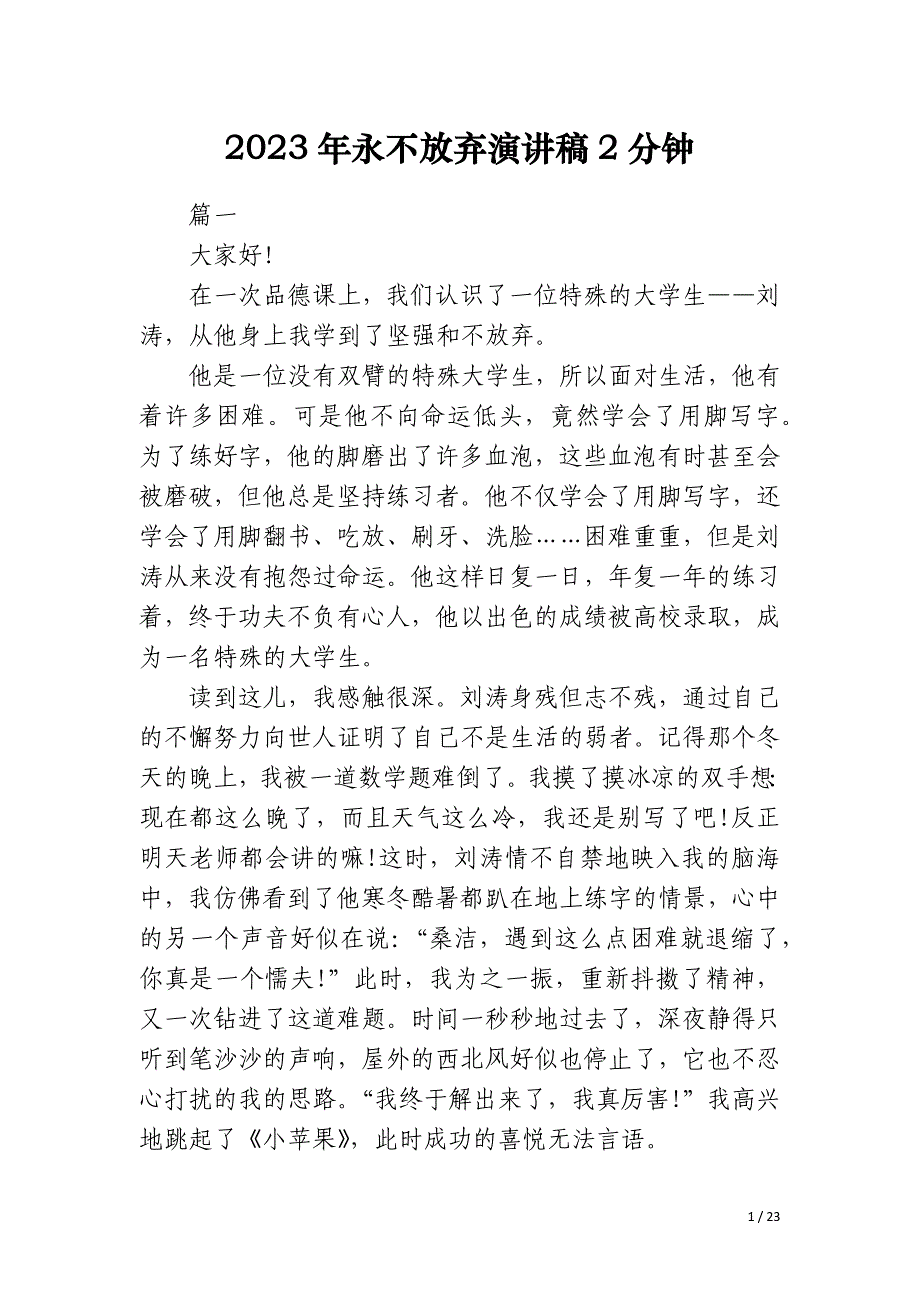 2023年永不放弃演讲稿2分钟
篇一
大家好!
在一次品德课上，我们认识了一位特殊的大学生——刘
涛，从他身上我学到了坚强和不放弃。
他是一位没有双臂的特殊大学生，所以面对生活，他有
着许多困难。可是他不向命运低头，竟然学会了用脚写字。
为了练好字，他的脚磨出了许多血泡，这些血泡有时甚至会
被磨破，但他总是坚持练习者。他不仅学会了用脚写字，还
学会了用脚翻书、吃放、刷牙、洗脸……困难重重，但是刘
涛从来没有抱怨过命运。他这样日复一日，年复一年的练习
着，终于功夫不负有心人，他以出色的成绩被高校录取，成
为一名特殊的大学生。
读到这儿，我感触很深。刘涛身残但志不残，通过自己
的不懈努力向世人证明了自己不是生活的弱者。记得那个冬
天的晚上，我被一道数学题难倒了。我摸了摸冰凉的双手想：
现在都这么晚了，而且天气这么冷，我还是别写了吧!反正
明天老师都会讲的嘛!这时，刘涛情不自禁地映入我的脑海
中，我仿佛看到了他寒冬酷暑都趴在地上练字的情景，心中
的另一个声音好似在说：“桑洁，遇到这么点困难就退缩了，
你真是一个懦夫!”此时，我为之一振，重新抖擞了精神，
又一次钻进了这道难题。时间一秒秒地过去了，深夜静得只
听到笔沙沙的声响，屋外的西北风好似也停止了，它也不忍
心打扰的我的思路。“我终于解出来了，我真厉害!”我高兴
地跳起了《小苹果》，此时成功的喜悦无法言语。
1 / 23